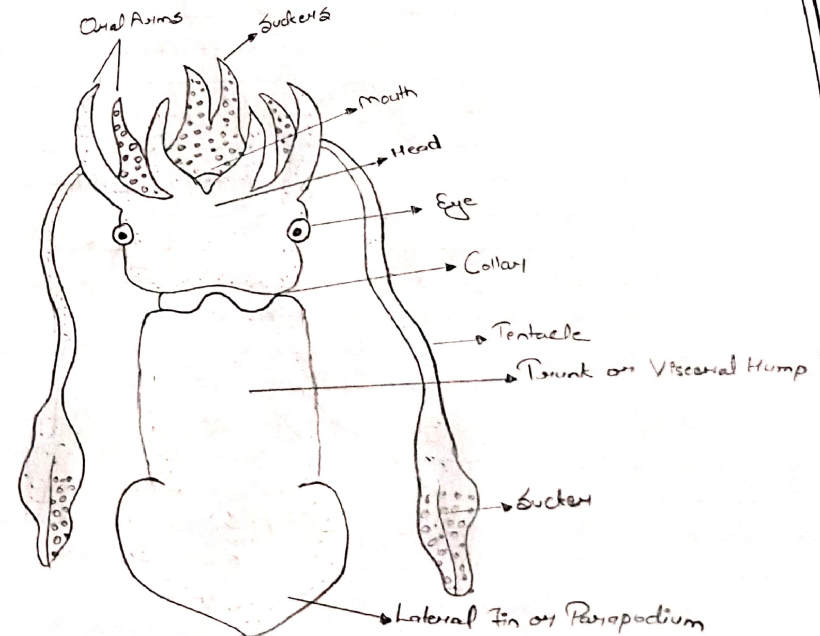 Oral Arms
Suckers
Mouth
Head
Eye
Collar
Tentacle
Trunk or Visceral Hump
Sucker
Lateral Fin or Parapodium